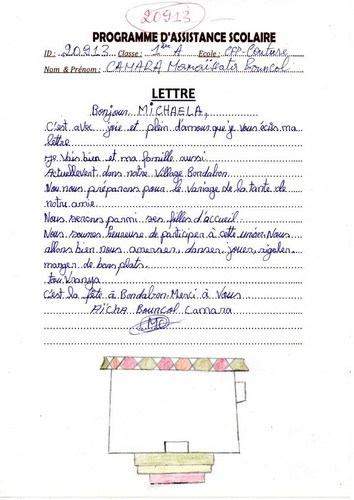 20913
PROGRAMME D'ASSISTANCE SCOLAIRE
ID : 20913 Classe : 1ère A Ecole : CFP-Couture
Nom & Prénom : CAMARA Bouncol
LETTRE
Bonjour MICHAELA,
C'est avec joie et plein d'amour que je vous écris ma
lettre
Je vais bien et ma famille aussi.
Actuellement dans notre Village Bondabon
Nou nous préparons pour le Mariage de la tante de
notre amie.
Nous serons parmi ses filles d'accueil
Nous sommes heureuse de participer à cette union. Nous
allons bien nous amesser, danser, jouer, rigoler
manger de bons plats.
C'est la fête à Bondabon. Merci à Vous
AÏCHA Bouncol Camara
MC